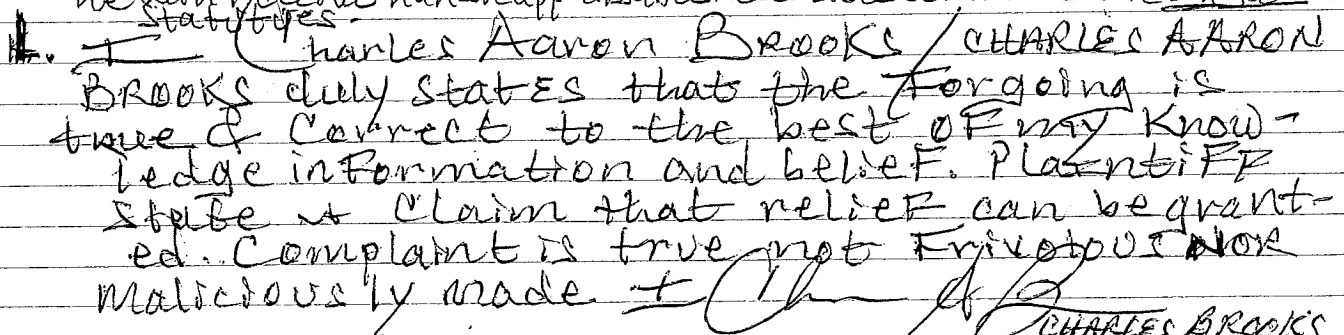 statutyes-
1. I Charles Aaron Brooks/CHARLES AARON
BROOKS duly states that the Forgoing is
true & Correct to the best of my Know-
ledge information and belief. PlaintiFF
state a Claim that relief can be grant-
ed. Complaint is true not Frivolous NOR
maliciously made I
CHARLES BROOKS